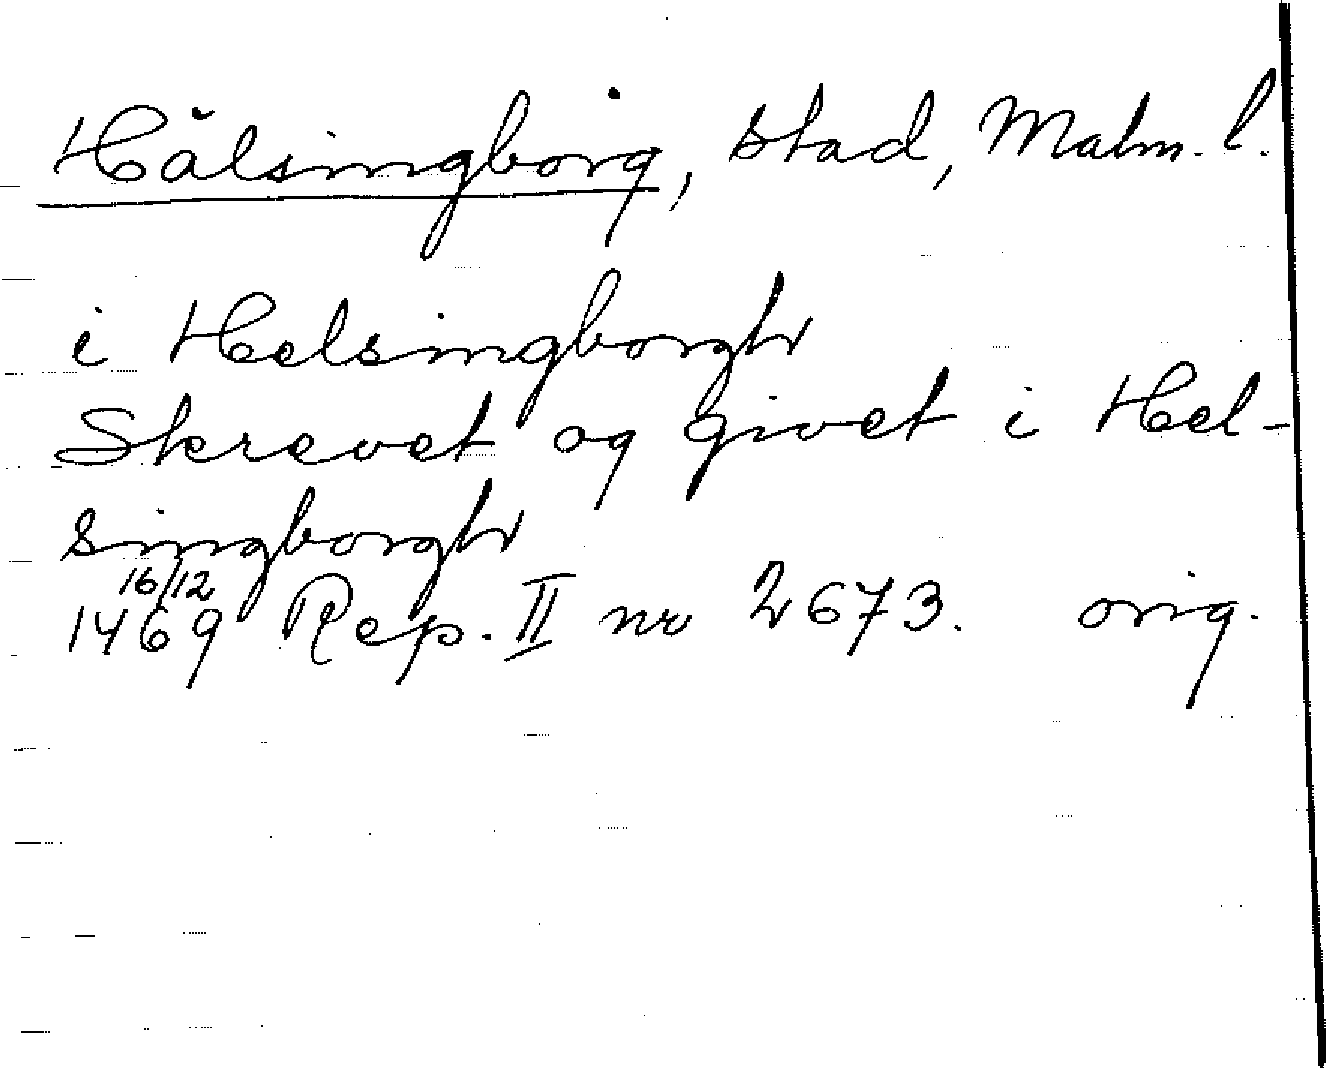 Hälsingborg, stad, Malm. l.
i Helsingborgh
Skrevet og givet i Hel-
singborgh
16/12
1469 Rep. II nr 2673. orig.